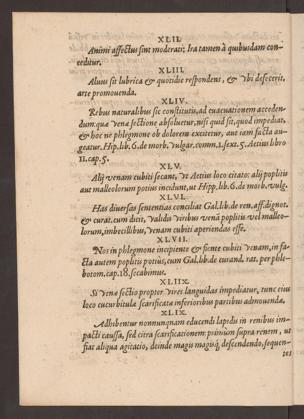 XLII.
Animi affectus sint moderati; Ira tamen à quibusdam con-
ceditur.
XLIII.
Aluus sit lubrica & quotidie respondens, & vbi defecerit,
arte promouenda.
XLIV.
Rebus naturalibus sic constitutis, ad euacuationem acceden-
dum: quæ venæ sectione absoluitur, nisi quid sit, quod impediat,
& hoc ne phlegmone ob dolorem excitetur, aut eam facta au-
geatur. Hip. lib. 6. de morb. vulgar. comm. 1. sext. 5. Aetius libro
11. cap. 5.
XLV.
Alij venam cubiti secant, vt Aetius loco citato: alij poplitis
aut malleolorum potius incidunt, ut Hipp. lib. 6. de morb. vulg.
XLVI.
Has diuersas sententias conciliat Gal. lib. de ren. aff. dignot.
& curat. cum dicit, validis viribus venã poplitis vel malleo-
lorum, imbecillibus, venam cubiti aperiendas esse.
XLVII.
Nos in phlegmone incipiente & fiente cubiti venam, in fa-
cta autem poplitis potius, cum Gal. lib. de curand. rat. per phle-
botom. cap. 18. secabimus.
XLIIX.
Si venæ sectio propter vires languidas impediatur, tunc eius
loco cucurbitulæ scarificatæ inferioribus partibus admouendæ.
XLIX.
Adhibentur nonnunquam educendi lapidis in renibus im-
pacti caussa, sed citra scarificationem: primùm supra renem, ut
fiat aliqua agitatio, deinde magis magisq́; descendendo, sequen-
tes